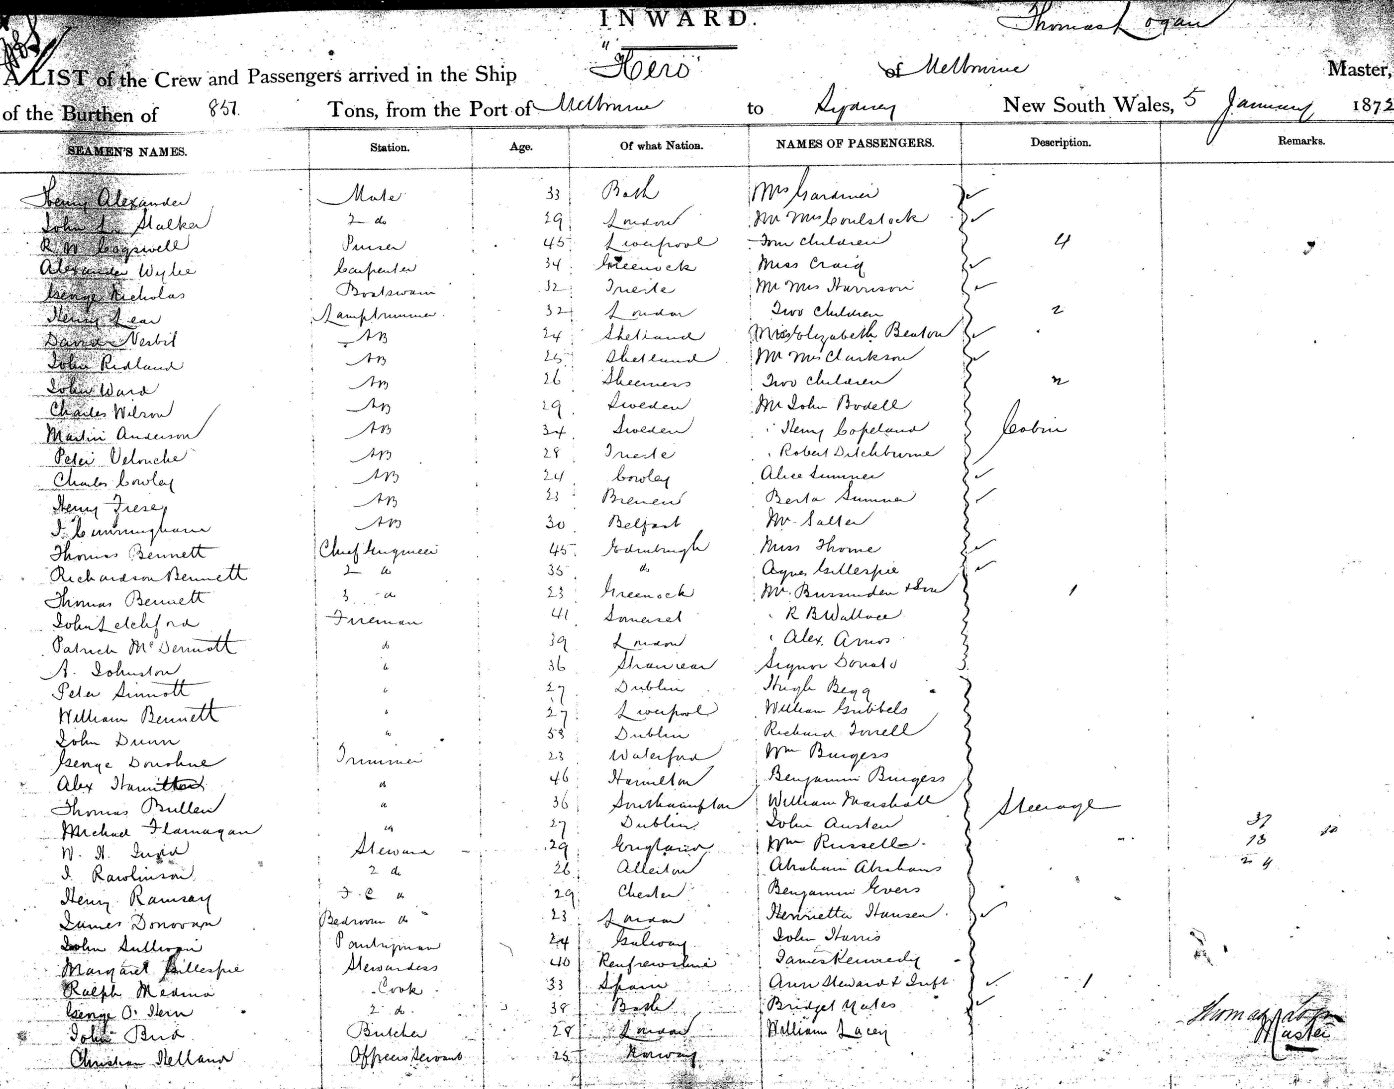 INWARD.
Thomas Logan
A LIST of the Crew and Passengers arrived in the Ship "Hero" of Melbourne Master,
of the Burthen of 851. Tons, from the Port of Melbourne to Sydney New South Wales, 5 January 1872
SEAMEN'S NAMES. Station. Age. Of what Nation. NAMES OF PASSENGERS. Description. Remarks.
Henry Alexander Mate 33 Bath Mrs Gardiner
John L. Stalker 2 do 29 London Mr Mrs Coulstock
R. W. Cogswell Purser 45 Liverpool Four Children 4
Alexander Wylie Carpenter 34 Greenock Miss Craig
George Nicholas Boatswain 32 Trieste Mr Mrs Harrison
Henry Lear Lamptrimmer 32 London Two Children 2
David Nesbit AB 24 Shetland Mrs Elizabeth Beaton
John Ridland AB 25 Shetland Mr Mrs Clarkson
John Ward AB 26 Sheerness Two Children 2
Charles Wilson AB 29 Sweden Mr John Bodell
Martin Anderson AB 34 Sweden " Henry Copeland Cabin
Peter Velouche AB 28 Trieste " Robert Ditchburne
Charles Cowley AB 24 Cowley Alice Sumner
Henry Friese AB 23 Bremen Berta Sumner
J. Cunningham AB 30 Belfast Mr. Salter
Thomas Bennett Chief Engineer 45 Edinburgh Miss Thorne
Richardson Bennett 2 do 35 do Agnes Gillespie
Thomas Bennett 3 do 23 Greenock Mr. & Son 1
John Letchford Fireman 41 Somerset " R B Wallace
Patrick McDermott do 39 London " Alex. Amos
A. Johnston " 36 Stranraer Signor Donato
Peter Sinnott " 27 Dublin Hugh Begg
William Bennett " 27 Liverpool William Gribbels
John Dunn " 53 Dublin Richard Torrell
George Donohue Trimmer 23 Waterford Wm Burgess
Alex Hamilton do 46 Hamilton Benjamin Burgess
Thomas Bullen " 36 Southampton William Marshall Steerage
Michael Flannagan do 27 Dublin John Austen 37
W. H. Judd Steward 29 England Wm Russell 13 10
J. Rawlinson 2 do 26 Allerton Abraham Abrahams 24
Henry Ramsay F C do 29 Chester Benjamin Evers
James Donovan Bedroom do 23 London Henrietta Hansen
John Sullivan Pantryman 24 Galway John Harris
Margaret Gillespie Stewardess 40 Renfrewshire James Kennedy
Ralph Medina Cook 33 Spain Ann Steward & Inft 1
George O. Hern 2 do 38 Bath Bridget Yates
John Bird Butcher 28 London William Lacey
Christian Helland Officers Servant 25 Norway
Thomas Logan
Master